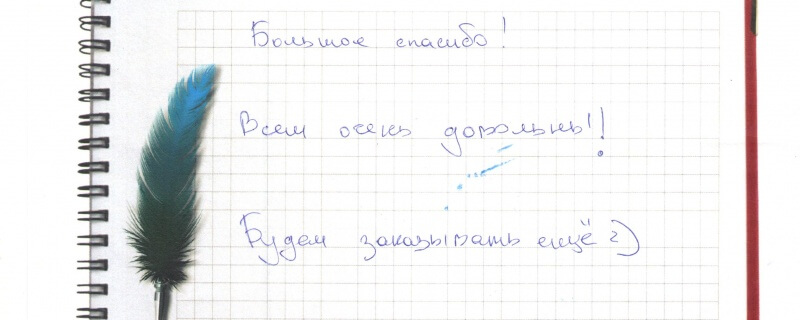 Большое спасибо!
Всем очень довольны!
Будем заказывать ещё :)